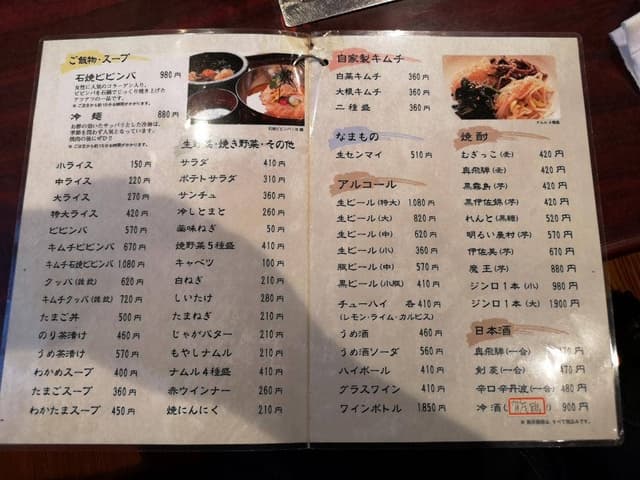 ご飯物・スープ
石焼ビビンバ 980円
女性に人気のコラーゲン入り。
ビビンバを石鍋でじっくり焼き上げた
アツアツの一品です。
冷麺 880円
季節を問わず人気となっています。
焼肉の後にぜひ!!
小ライス 150円
中ライス 220円
大ライス 270円
特大ライス 420円
ビビンバ 570円
キムチビビンバ 670円
キムチ石焼ビビンバ 1,080円
クッパ(雑炊) 620円
キムチクッパ(雑炊) 720円
たまご丼 500円
のり茶漬け 460円
うめ茶漬け 570円
わかめスープ 400円
たまごスープ 360円
わかたまスープ 450円
生野菜・焼き野菜・その他
サラダ 410円
ポテトサラダ 310円
サンチュ 360円
冷しとまと 260円
薬味ねぎ 50円
焼野菜5種盛 410円
キャベツ 100円
白ねぎ 210円
しいたけ 280円
たまねぎ 210円
じゃがバター 210円
もやしナムル 210円
ナムル4種盛 410円
赤ウインナー 260円
焼にんにく 210円
自家製キムチ
白菜キムチ 360円
大根キムチ 360円
二種盛 360円
なまもの
生センマイ 510円
アルコール
生ビール(特大) 1,080円
生ビール(大) 820円
生ビール(中) 620円
生ビール(小) 360円
瓶ビール(中) 570円
黒ビール(小瓶) 410円
チューハイ 各410円
(レモン・ライム・カルピス)
うめ酒 460円
うめ酒ソーダ 560円
ハイボール 410円
グラスワイン 410円
ワインボトル 1,850円
焼酎
むぎっこ(麦) 420円
真飛騨(麦) 420円
黒霧島(芋) 420円
黒伊佐錦(芋) 420円
れんと(黒糖) 520円
明るい農村(芋) 570円
伊佐美(芋) 670円
魔王(芋) 880円
ジンロ1本(小) 980円
ジンロ1本(大) 1,900円
日本酒
真飛騨(一合) 470円
剣菱(一合)
辛口辛丹波(一合) 480円
冷酒( ) 900円
※表示価格は、すべて税込みです。